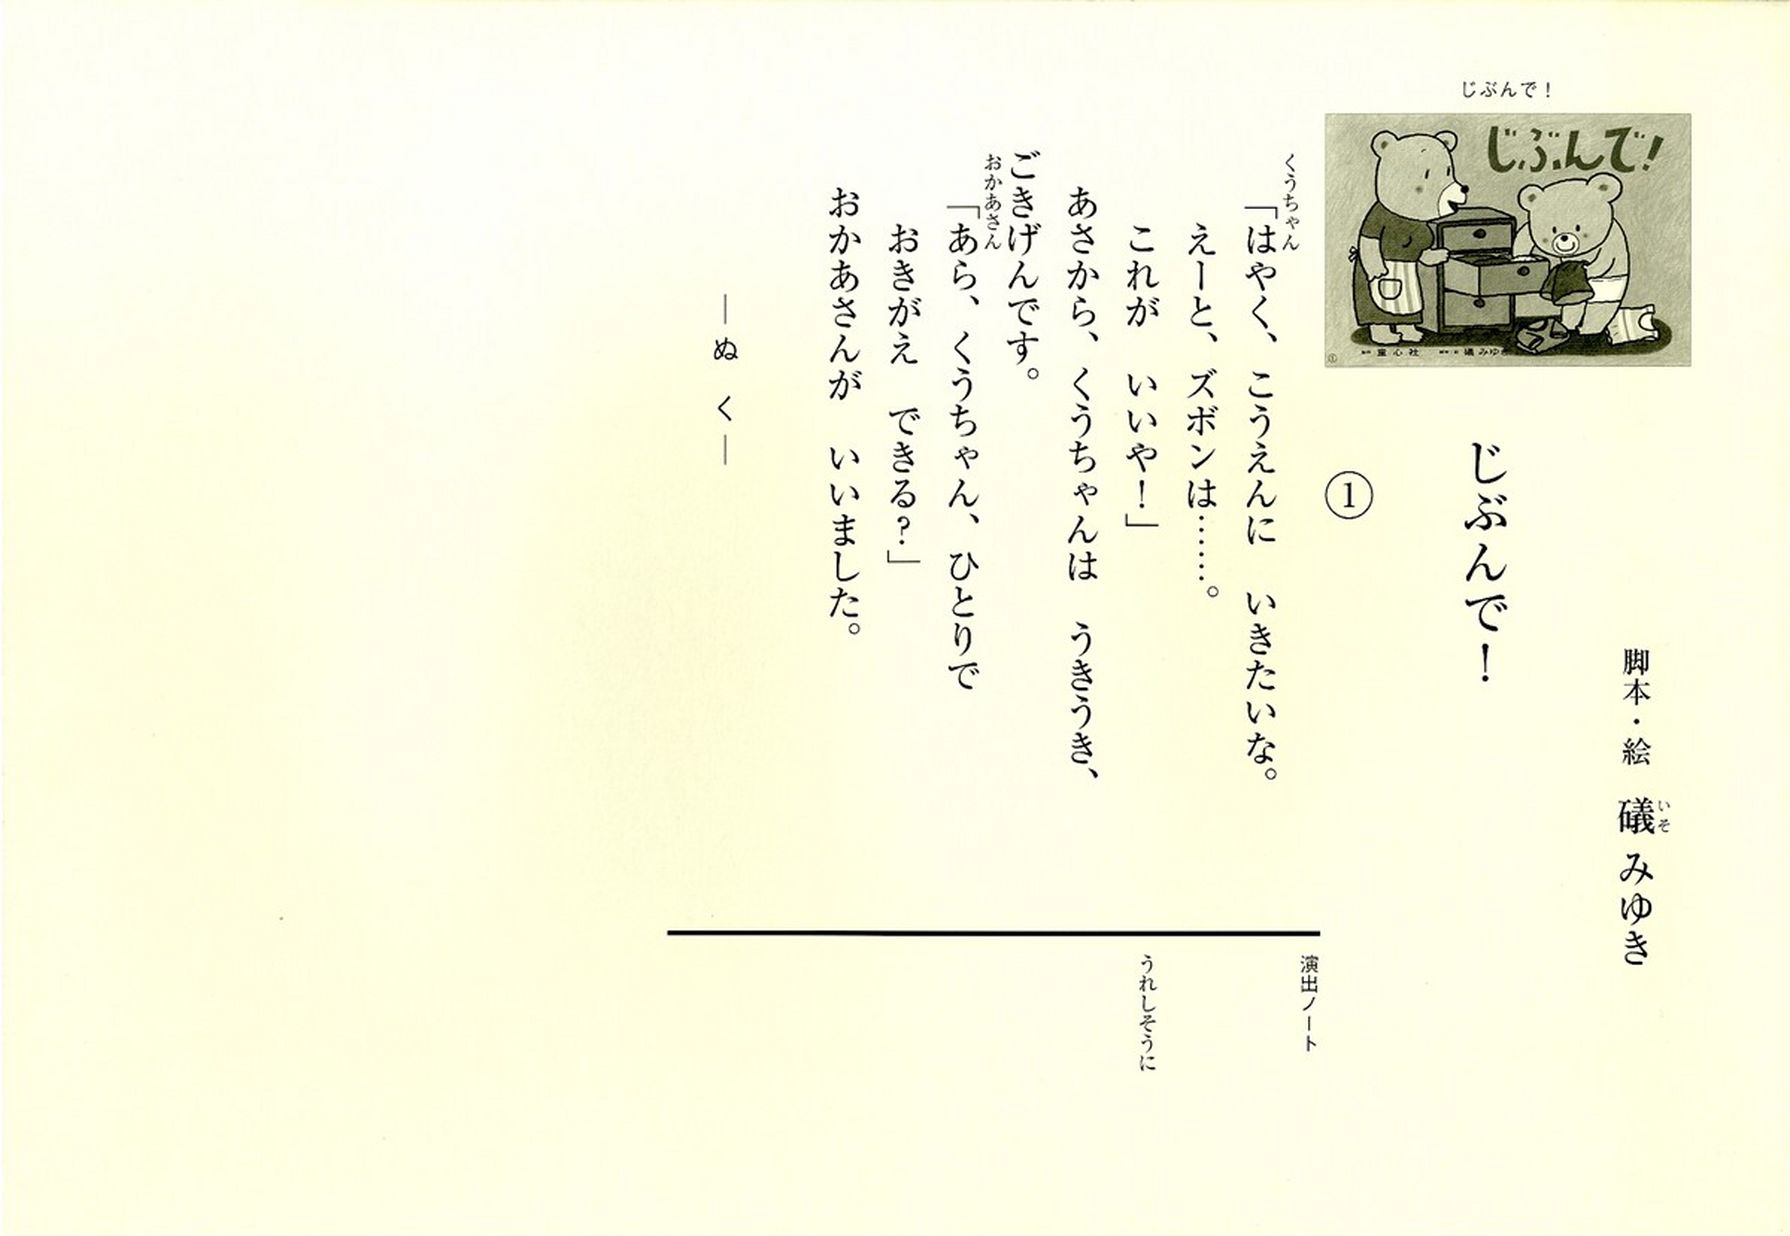 じぶんで！
じぶんで！
① 童心社 礒みゆき
脚本・絵 礒 みゆき
いそ
じぶんで！
①
くうちゃん
「はやく、こうえんに いきたいな。
えーと、ズボンは……。
これが いいや！」
あさから、くうちゃんは うきうき、
ごきげんです。
おかあさん
「あら、くうちゃん、ひとりで
おきがえ できる？」
おかあさんが いいました。
―ぬ く―
演出ノート
うれしそうに